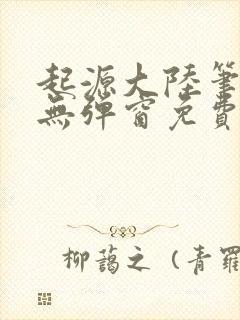 起源大陸筆
無彈窗免費
柳藹之（青羅